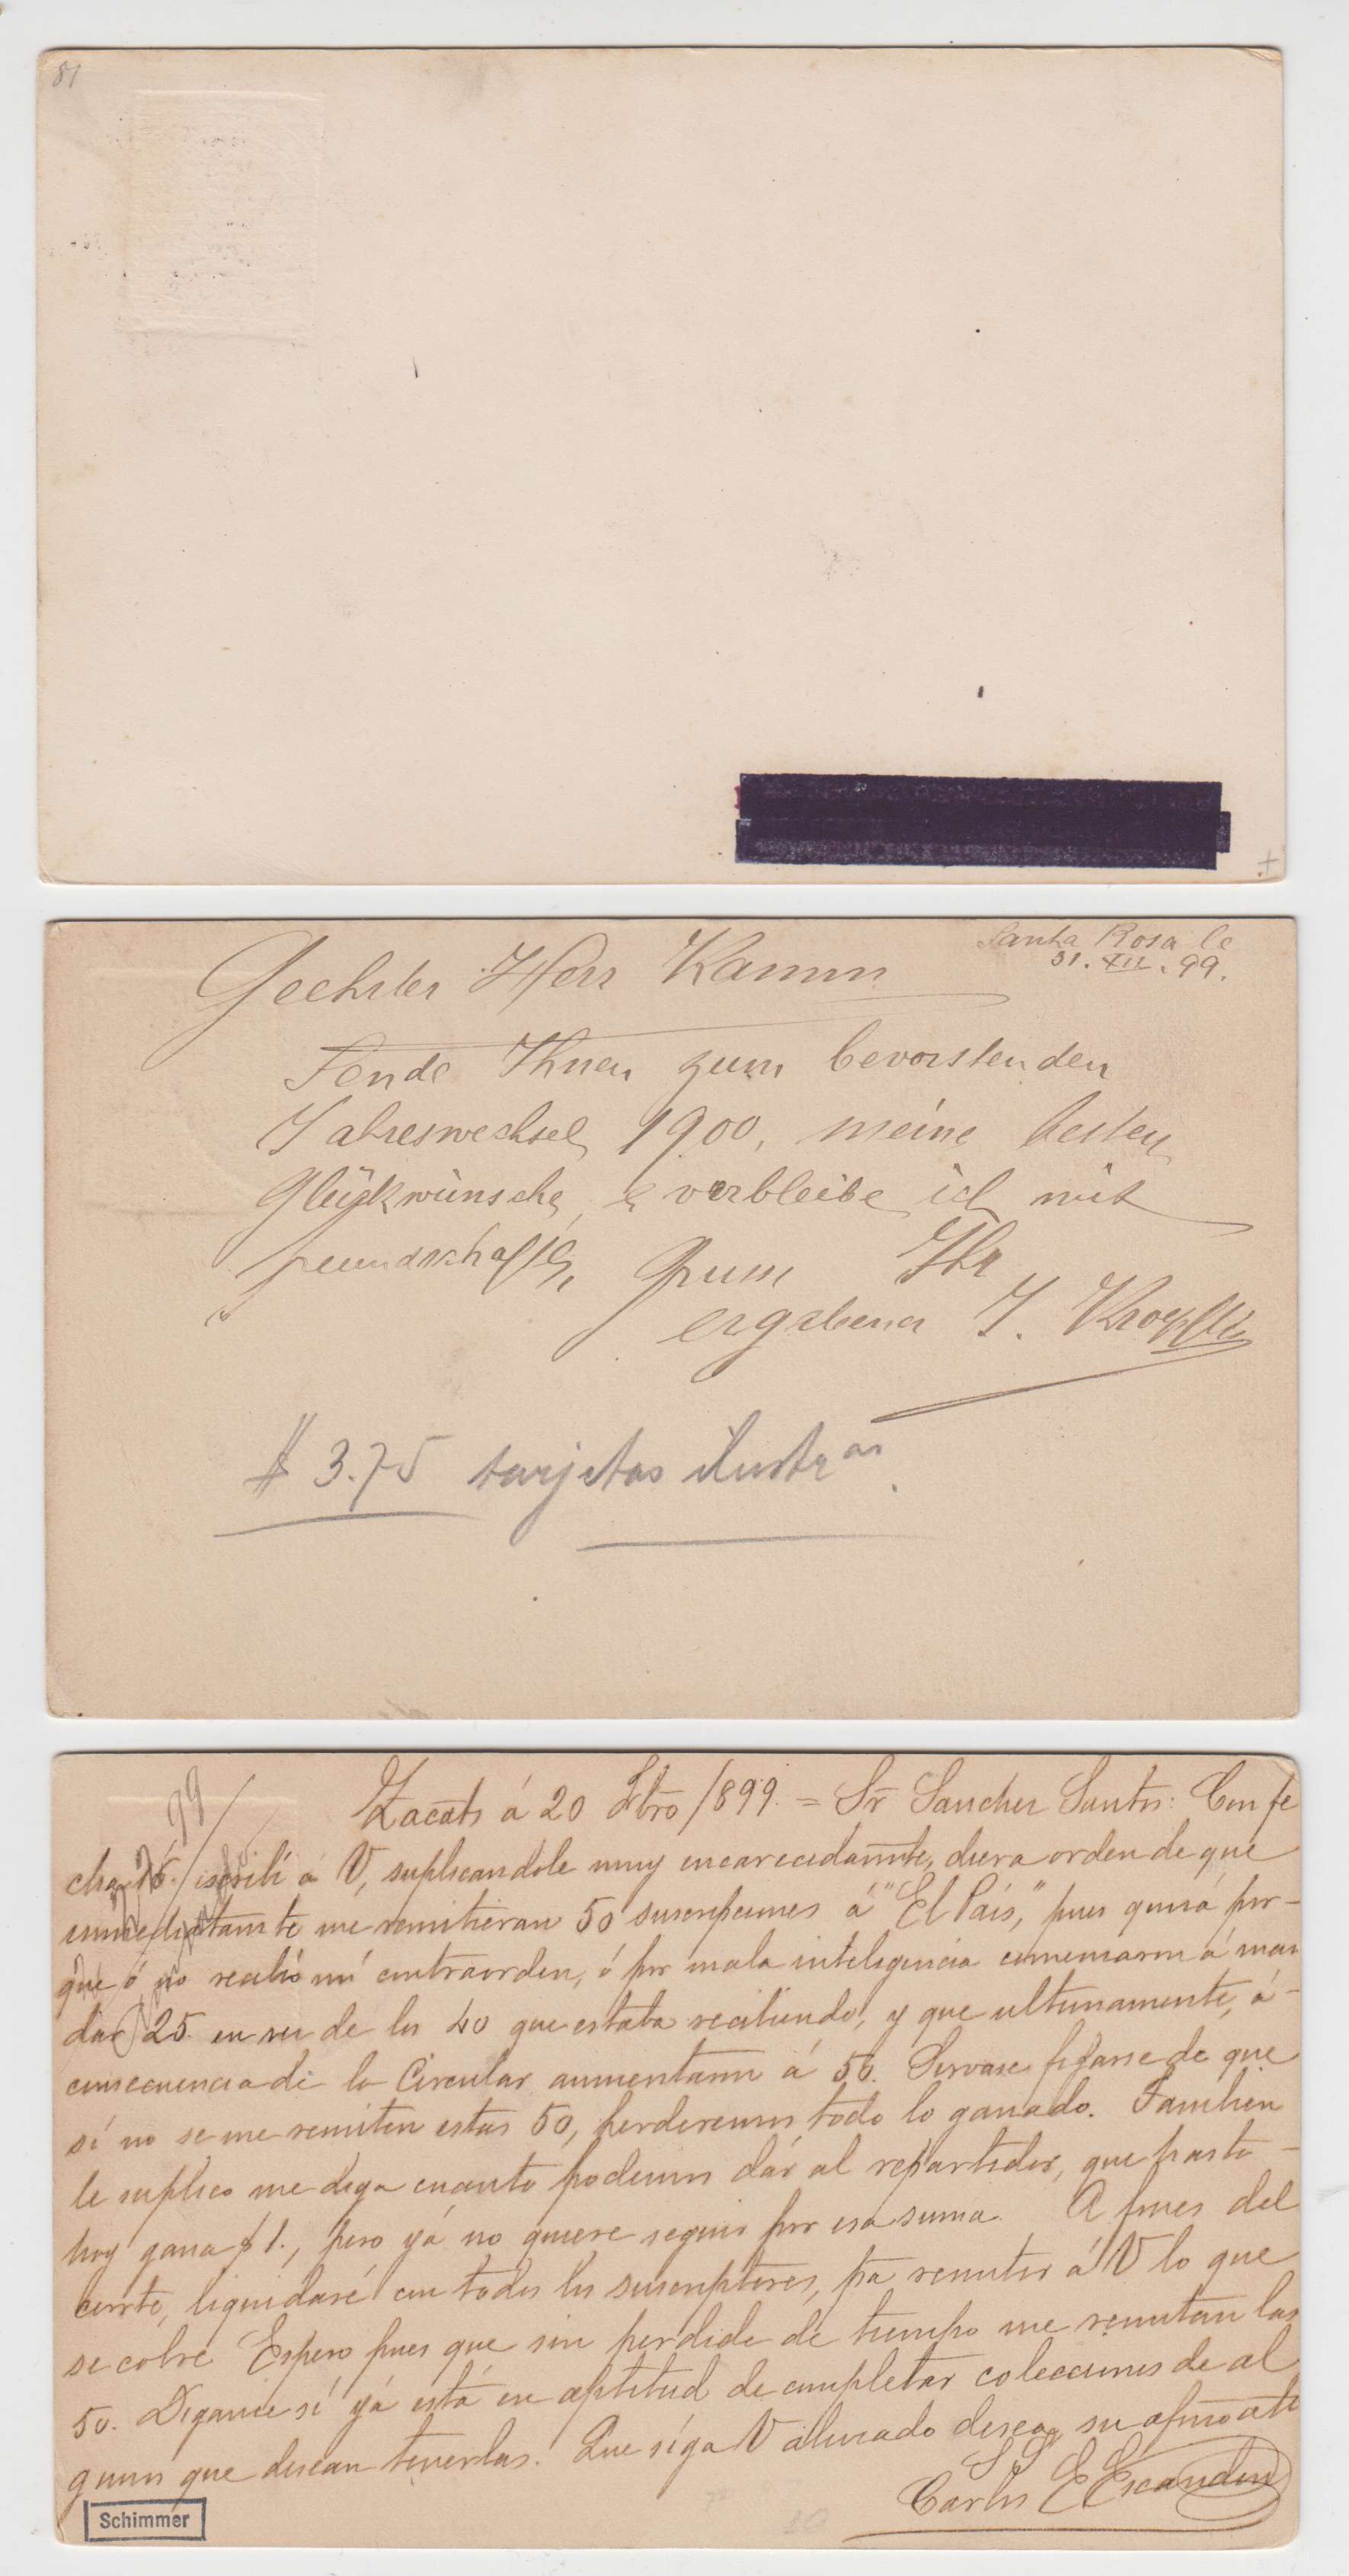 81
Santa Rosa le
31. XII. 99.
Geehrter Herr Kamm
Sende Ihnen zum bevorstenden
Jahreswechsel 1900, meine besten
Glükwünsche, & verbleibe ich mit
freundschaftl. Gruss Ihr
ergebener J.
$ 3.75 tarjetas ilustras.
99
Zacats á 20 Fbro /899. = Sr Sanchez Santos: Con fe
cha 15. escribi á V, suplicandole muy encarecidamte, diera orden de que
inmediatamte me remitieran 50 suscripciones á "El País," pues quizá por-
que ó no recibió mi contraorden, ó por mala inteligencia comenzaron á man
dar 25. en vez de los 40 que estaba recibiendo, y que ultimamente, á-
consecuencia de la Circular aumentaron á 50. Sirvase fijarse de que
sí no se me remiten estas 50, perderemos todo lo ganado. Tambien
le suplico me diga cuanto podemos dár al repartidor, que hasta-
hoy gana $ 1., pero yá no quiere seguir por esa suma. A fines del
corrte, liquidaré con todos los suscriptores, pa remitir á V lo que
se cobre Espero pues que sin perdida de tiempo me remitan las
50. Digame sí yá está en aptitud de completar colecciones de al
gunos que desean tenerlas. Que síga V aliviado desea su afmo atto
S S
Carlos E Escandon
Schimmer